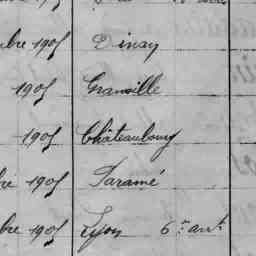 bre 1905 Dinan
1905 Granville
1905 Châteaubourg
bre 1905 Paramé
bre 1905 Lyon 6e arrt